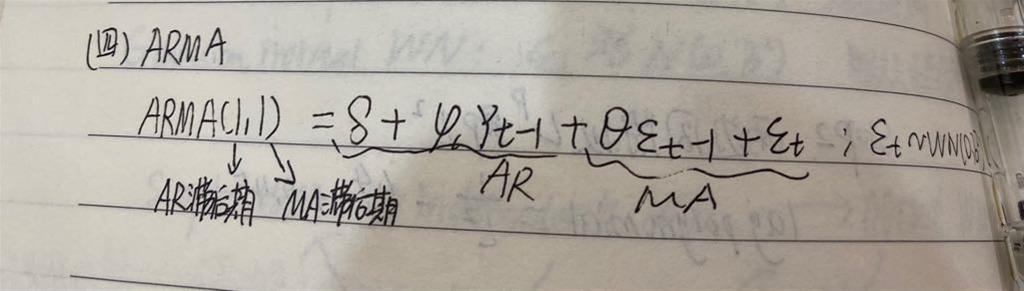 (四) ARMA
ARMA(1,1) = δ + φ₁ Yt-1 + θ εt-1 + εt ; εt ~ WN(0,
AR滞后期 MA滞后期 AR MA